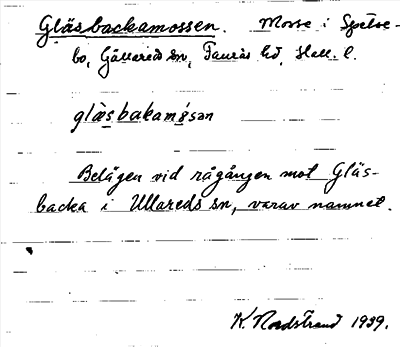 Gläsbackamossen. Mosse i Spelse-
bo, Gällareds sn, Faurås hd, Hall. l.
glæsbakamåsən
Belägen vid rågången mot Gläs-
backa i Ullareds sn, varav namnet.
K. Nordstrand 1939.